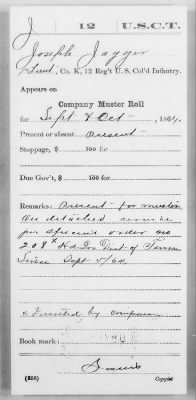 J 12 U.S.C.T.
Joseph Jagger
Lieut, Co. K, 12 Reg't U.S. Col'd Infantry.
Appears on
Company Muster Roll
for Sept & Oct, 1864.
Present or absent Present
Stoppage, $ 100 for
Due Gov't, $ 100 for
Remarks: Present for muster
On detached service
per special order no
208 Hd Qrs Dist of Tenn
Since Sept 5/64
by company
Book mark:
(858) Copyist.